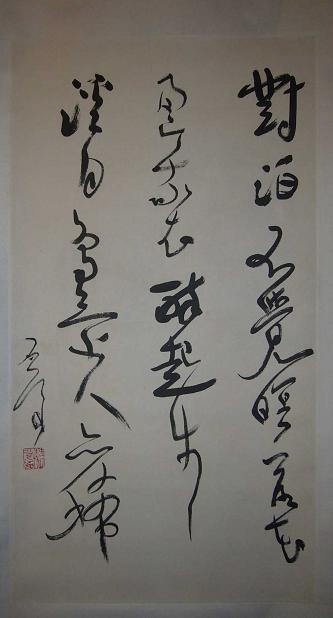 對酒不覺暝落花
盈我衣醉起步
溪月鳥還人亦稀